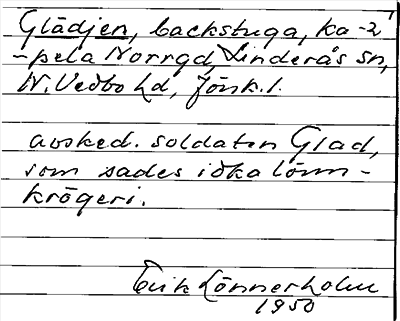 Glädjen, backstuga, ka-2
-pela Norrgd, Linderås sn,
N. Vedbo hd, Jönk. l.
avsked. soldaten Glad,
som sades idka lönn-
krögeri.
Erik Lönnerholm
1950